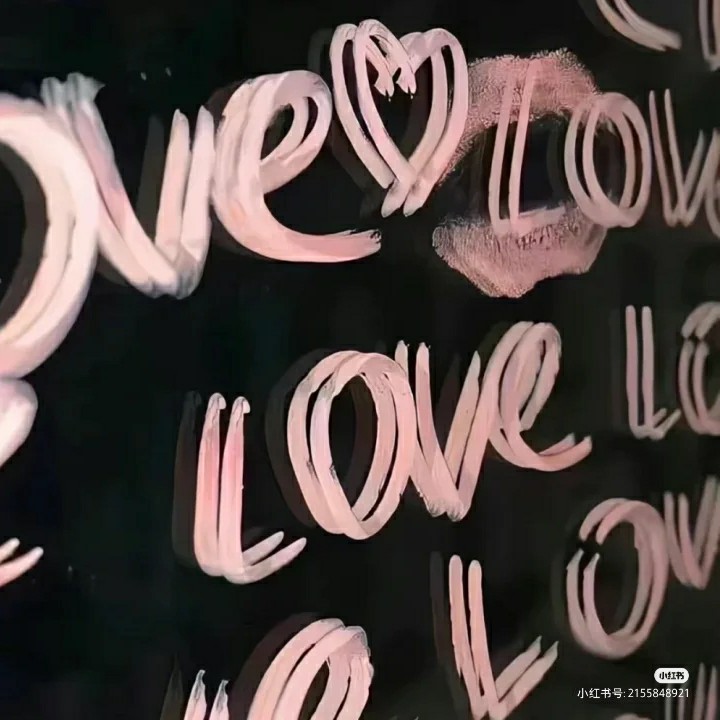 ove♡ Love
Love Lo
Lov
小红书
小红书号: 2155848921